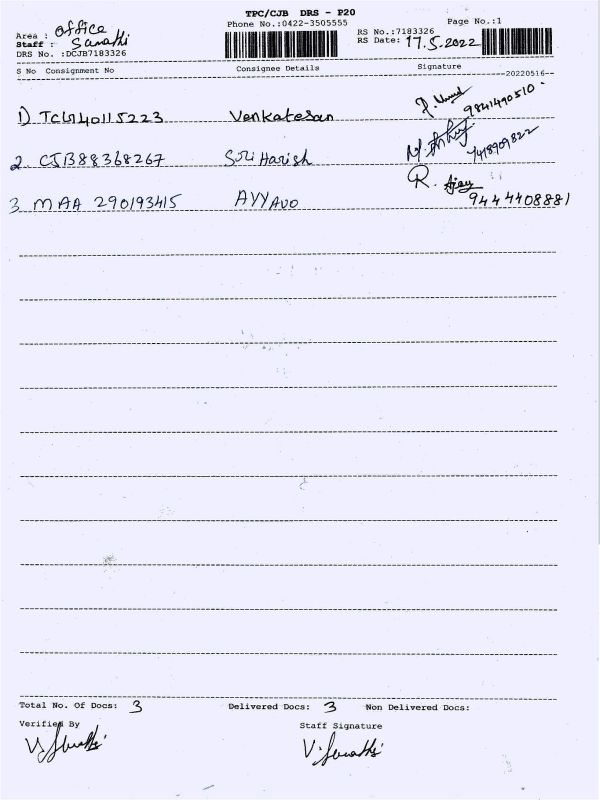 TPC/CJB DRS - P20
Phone No.:0422-3505555
Page No.:1
Area : office
RS No.:7183326
Staff :
RS Date: 17.5.2022
DRS No. :DCJB7183326
S No Consignment No Consignee Details Signature
--20220516--
1) TCW140115223 Venkatesan 9841490510
2. CJB88368267 Sri Harish 7418909822
3 MAA 290193415 AYYAVO R. Ajay 9444408881
Total No. Of Docs: 3 Delivered Docs: 3 Non Delivered Docs:
Verified By Staff Signature